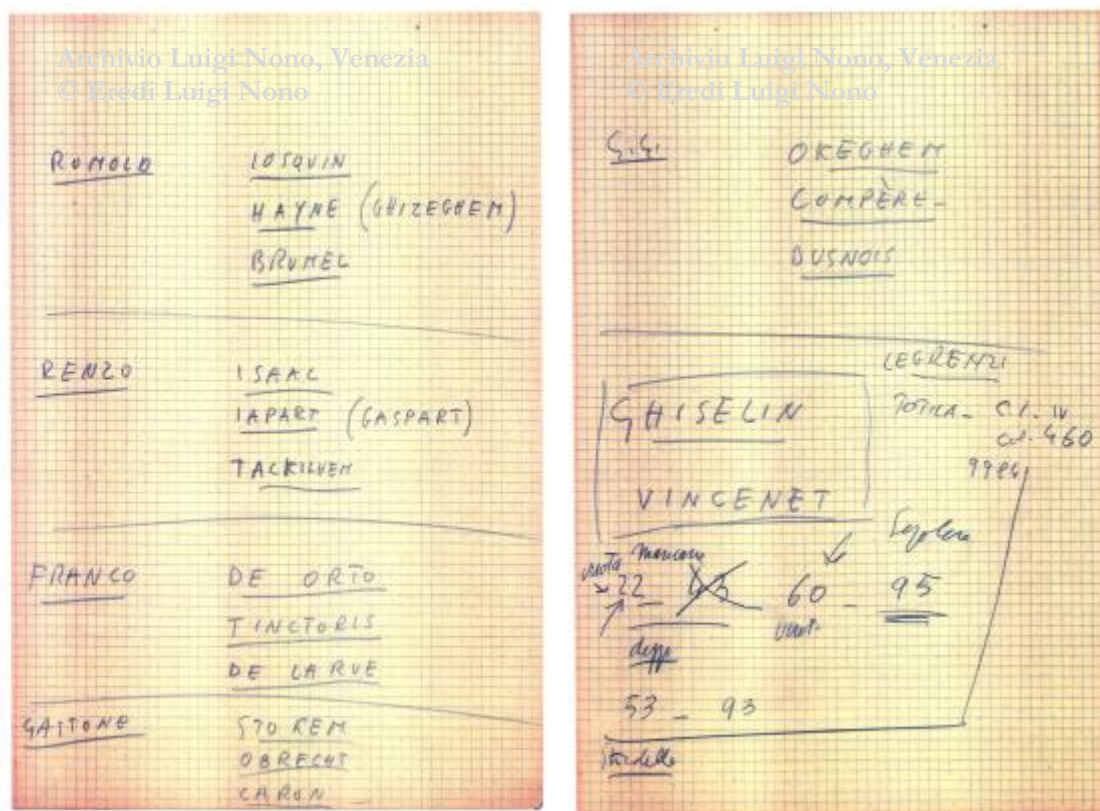 Archivio Luigi Nono, Venezia
© Eredi Luigi Nono
ROMOLO IOSQUIN
HAYNE (GHIZEGHEM)
BRUMEL
RENZO ISAAC
IAPART (GASPART)
FRANCO DE ORTO
TINCTORIS
DE LA RUE
GASTONE STOKEM
OBRECHT
CARON
Archivio Luigi Nono, Venezia
© Eredi Luigi Nono
G.G. OKEGHEM
COMPÈRE
BUSNOIS
LEGRENZI
GHISELIN
460
VINCENET
mancano
22 60 95
53 _ 93